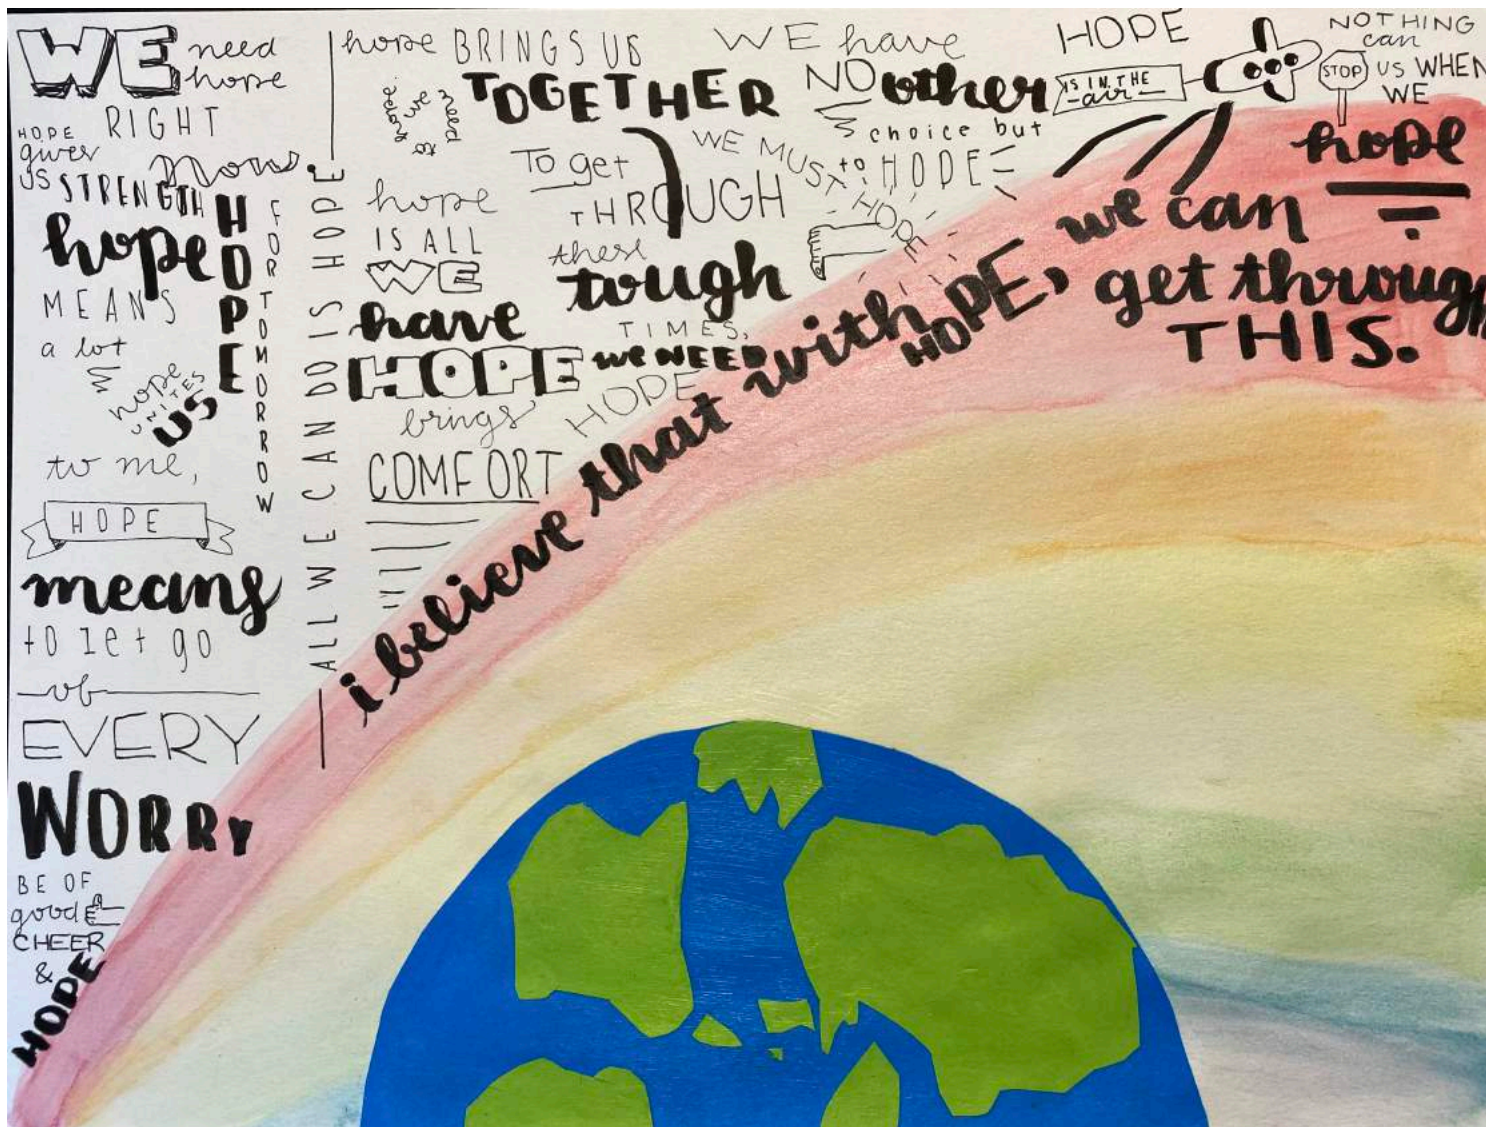 WE need
hope
RIGHT
now.
HOPE
gives
US STRENGTH
hope
MEANS
a lot
HOPE
FOR TOMORROW
hope
UNITES
US
to me,
HOPE
means
to let go
of
EVERY
WORRY
BE OF
good
CHEER
&
HOPE
ALL WE CAN DO IS HOPE
hope BRINGS US
TOGETHER
we need to
hope
IS ALL
WE
have
HOPE
brings
COMFORT
To get
THROUGH
these
tough
TIMES,
we NEED
HOPE
WE have
NO other
choice but
to HOPE
WE MUST
HOPE
HOPE
IS IN THE
air
NOTHING
can
STOP US WHEN
WE
hope
i believe that with HOPE, we can
get through
THIS.